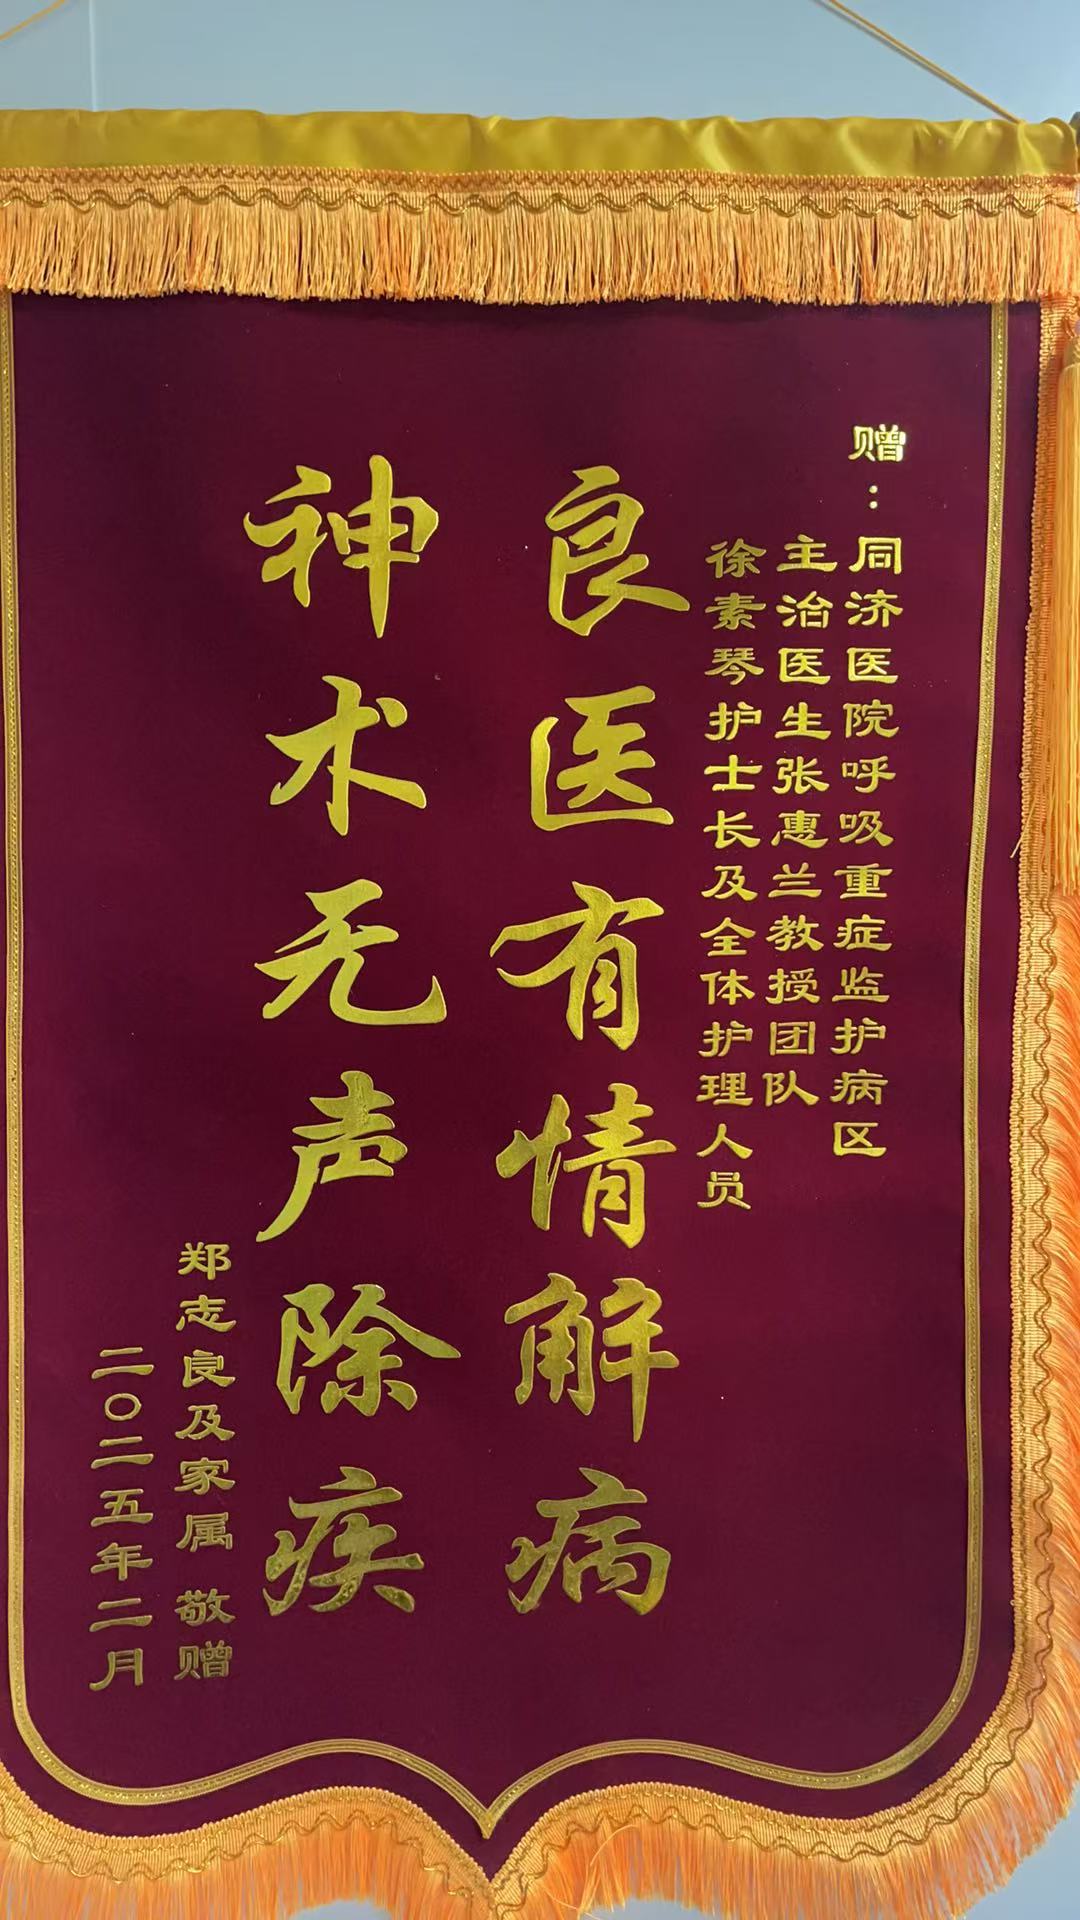 赠：同济医院呼吸重症监护病区
主治医生张惠兰教授团队
徐素琴护士长及全体护理人员
良医有情解病
神术无声除疾
郑志良及家属 敬赠
二〇二五年二月